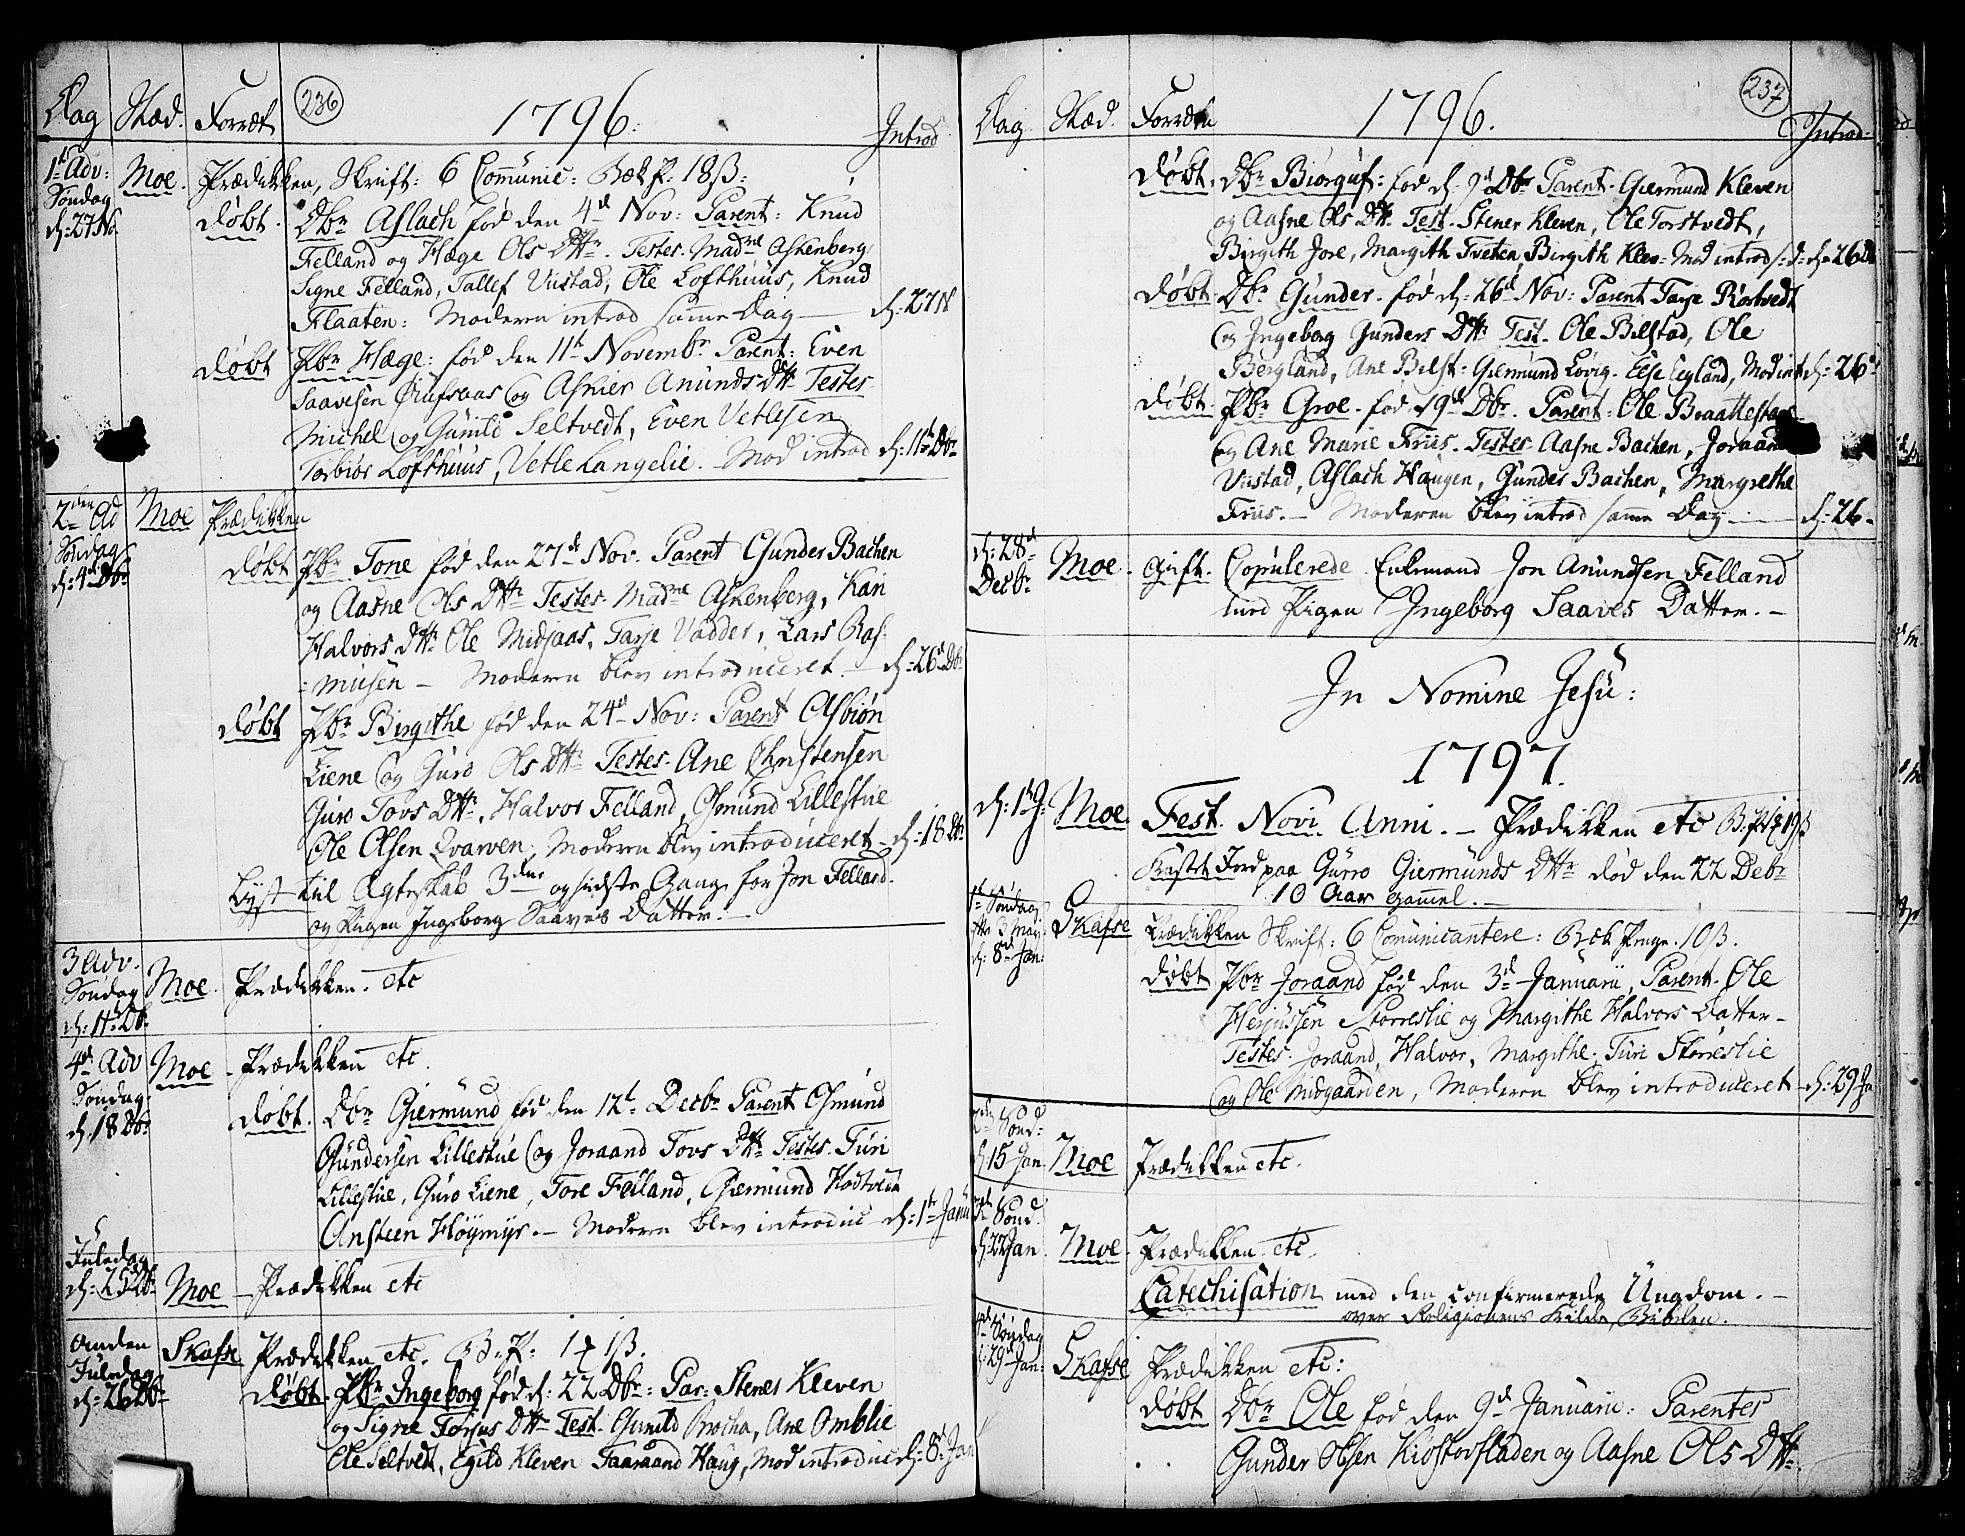 Dag Stæd. Forrett 236 1796. Introd
1te Adv: Moe. Prædikken, Skrift: 6 Communic: Bøk P. 18ß:
Søndag døbt. Dbr Aslach fød den 4de Nov: Parent: Knud
d: 27 No Felland og Hæge Ols Dttr. Testes. Madme Askenberg
Signe Felland, Tallef Vüstad, Ole Lofthuus, Knud
Flaaten: Moderen introd samme Dag — d: 27 N
døbt Pbr Hæge: fød den 11te Novembr Parent: Even
Saavesen og Anünds Dttr Testes
Michel og Günild Seltvedt, Even Vetlesen
Torbiør Lofthuus, Vetle Langelie. Mod introd d: 11te Dbr
2den Ad Moe Prædikken
Søndag døbt Pbr Tone fød den 27de Nov. Parent Gunder Bachen
d: 4de Dbr og Aasne Ols Dttr Testes. Madme Askenberg, Kari
Halvors Dttr Ole Midjaas, Tarje Vadder, Lars Ras-
=müsen — Moderen blev introduceret. — d: 26de Dbr
døbt Pbr Birgithe fød den 24de Nov: Parent Asbiøn
Liene og Guro Ols Dttr Testes. Ane Christensen
Guro Tovs Dttr, Halvor Felland, Osmund Lillestue
Ole Olsen Qvarven, Moderen blev introduceret — d: 18 Dbr
Lyst til Ægteskab 3die og sidste Gang for Jon Felland
og Pigen Ingeborg Saaves Datter. —
3 Adv. Moe. Prædikken. etc
Søndag
d: 11 Db:
4de Adv Moe — Prædikken etc.
Søndag døbt. Dbr Giermund fød den 12te Decbr Parent Osmund
d: 18 Dbr Gündersen Lillestue og Joraand Tovs Dttr Testes. Turi
Lillestue, Guro Liene, Tore Felland, Giermund Hodtvedt
Ansteen Høymyr. — Moderen blev introduc — d: 1te Janu
Juledag
d: 25 Dbr Moe — Prædikken etc
Anden Skafse Prædikken etc. B. P: 1 ß.
Juledag døbt. Pbr Ingeborg fød d: 22 Dbr: Par: Stener Kleven
d: 26 Dbr og Signe Torjus Dttr Test. Gunild Ane Omblie
Ole Seltvedt, Egild Kleven Taaraand Haug, Mod introduc d: 8de Jan
Dag Stæd. Forrett 1796. 237 Introd:
døbt. Dbr Biørguf: fød d: 9de Dbr Parent. Giermund Kleven
og Aasne Ols Dttr. Test. Stener Kleven, Ole Torstvedt,
Birgith Jore, Margith Tveten, Birgith Klev: Mod introd d: 26 Db
døbt. Dbr Gunder. fød d: 26de Nov: Parent Tarje Rørtvedt
og Ingeborg Gunders Dttr Test. Ole Bilstad, Ole
Bergland, Ane Bilst: Giermund Løvig. Else Eegland, Mod int d: 26de
døbt. Pbr Groe. fød 19de Dbr. Parent. Ole
og Ane Marie Friis. Testes. Aasne Bachen, Joraand
Vüstad, Aslach Haugen, Gunder Bachen, Margrethe
Friis. — Moderen blev introd samme Dag — d: 26.
d: 28de Moe. gift. Copulerede Enkemand Jon Anundsen Felland
Decbr. med Pigen Ingeborg Saaves Datter. —
In Nomine Jesü:
1797.
d: 1te J: Moe. Fest. Novi. Anni. — Prædikken etc
Kastet Jord paa Güro Giermünds Dttr død den 22 Decbr
10 Aar gammel. —
1te Søndag Skafse Prædikken Skrift: 6 Comunicantere: Bøk Penge. 10ß.
d: 8de Jan: døbt Pbr Joraand fød den 3de Januarii, Parent. Ole
Herjüssen Storreslie og Margithe Halvors Datter —
Testes. Joraand, Halvor, Margithe, Turi Storreslie
og Ole Midgaarden, Moderen blev introduceret — d: 29 Ja
2den Sønd:
d: 15 Jan. Moe Prædikken etc.
3de Sønd.
d: 22 Jan. Moe. Prædikken. etc.
Catechisation med den confirmerede Ungdom. —
over Religionens Kilde, Bibelen.
4de Søndag
29de Jan: Skafse Prædikken etc:
døbt Dbr Ole fød den 9de Januarii: Parentes
Gunder Olsen Kiostovfladen og Aasne Ols Dttr.